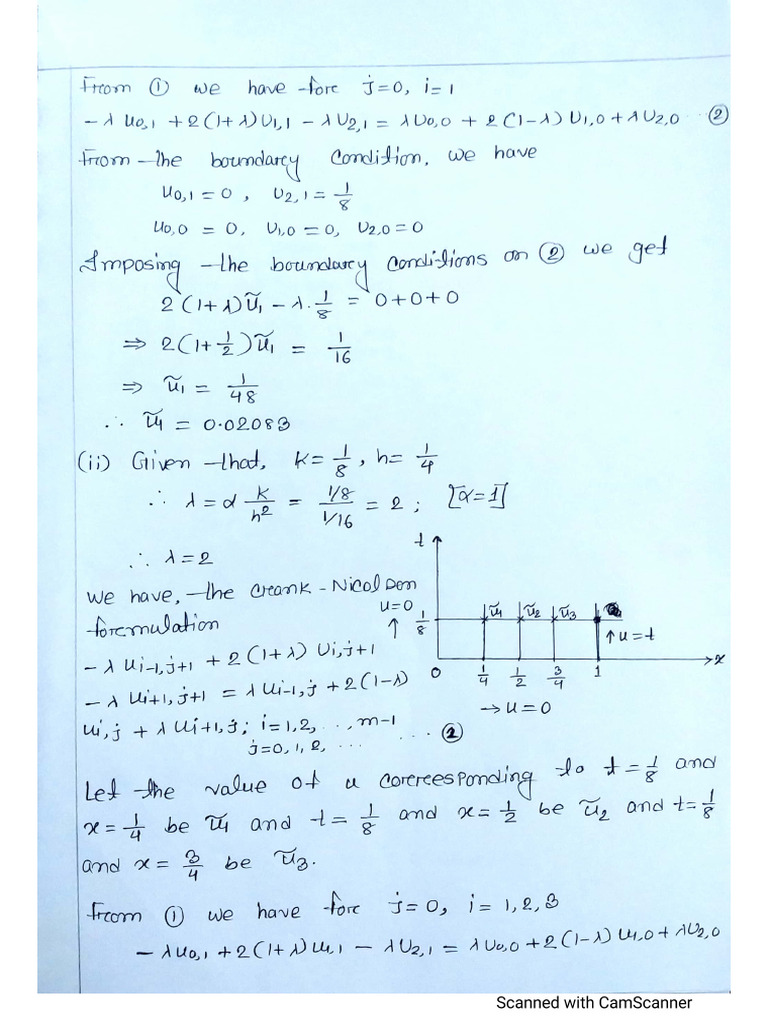 From ① we have for j=0, i=1
-λ u0,1 + 2(1+λ)U1,1 - λU2,1 = λU0,0 + 2(1-λ)U1,0 + λU2,0 ... ②
From the boundary condition, we have
u0,1 = 0, U2,1 = 1/8
u0,0 = 0, U1,0 = 0, U2,0 = 0
Imposing the boundary conditions on ② we get
2(1+λ)ũ1 - λ.1/8 = 0+0+0
⇒ 2(1+1/2)ũ1 = 1/16
⇒ ũ1 = 1/48
∴ ũ1 = 0.02083
(ii) Given that, k=1/8, h=1/4
∴ λ = α k/h² = (1/8)/(1/16) = 2; [α=1]
∴ λ=2
We have, the Crank-Nicolson
formulation
-λ ui-1,j+1 + 2(1+λ) Ui,j+1
-λ ui+1,j+1 = λ ui-1,j + 2(1-λ)
ui,j + λui+1,j; i=1,2,...,m-1
j=0,1,2,... ... ②
t
u=0
↑
1/8
ũ1 ũ2 ũ3
↑u=t
0 1/4 1/2 3/4 1 x
→u=0
Let the value of u corresponding to t=1/8 and
x=1/4 be ũ1 and t=1/8 and x=1/2 be ũ2 and t=1/8
and x=3/4 be ũ3.
From ① we have for j=0, i=1,2,3
-λu0,1 + 2(1+λ)u1,1 - λU2,1 = λU0,0 + 2(1-λ)u1,0 + λU2,0
Scanned with CamScanner